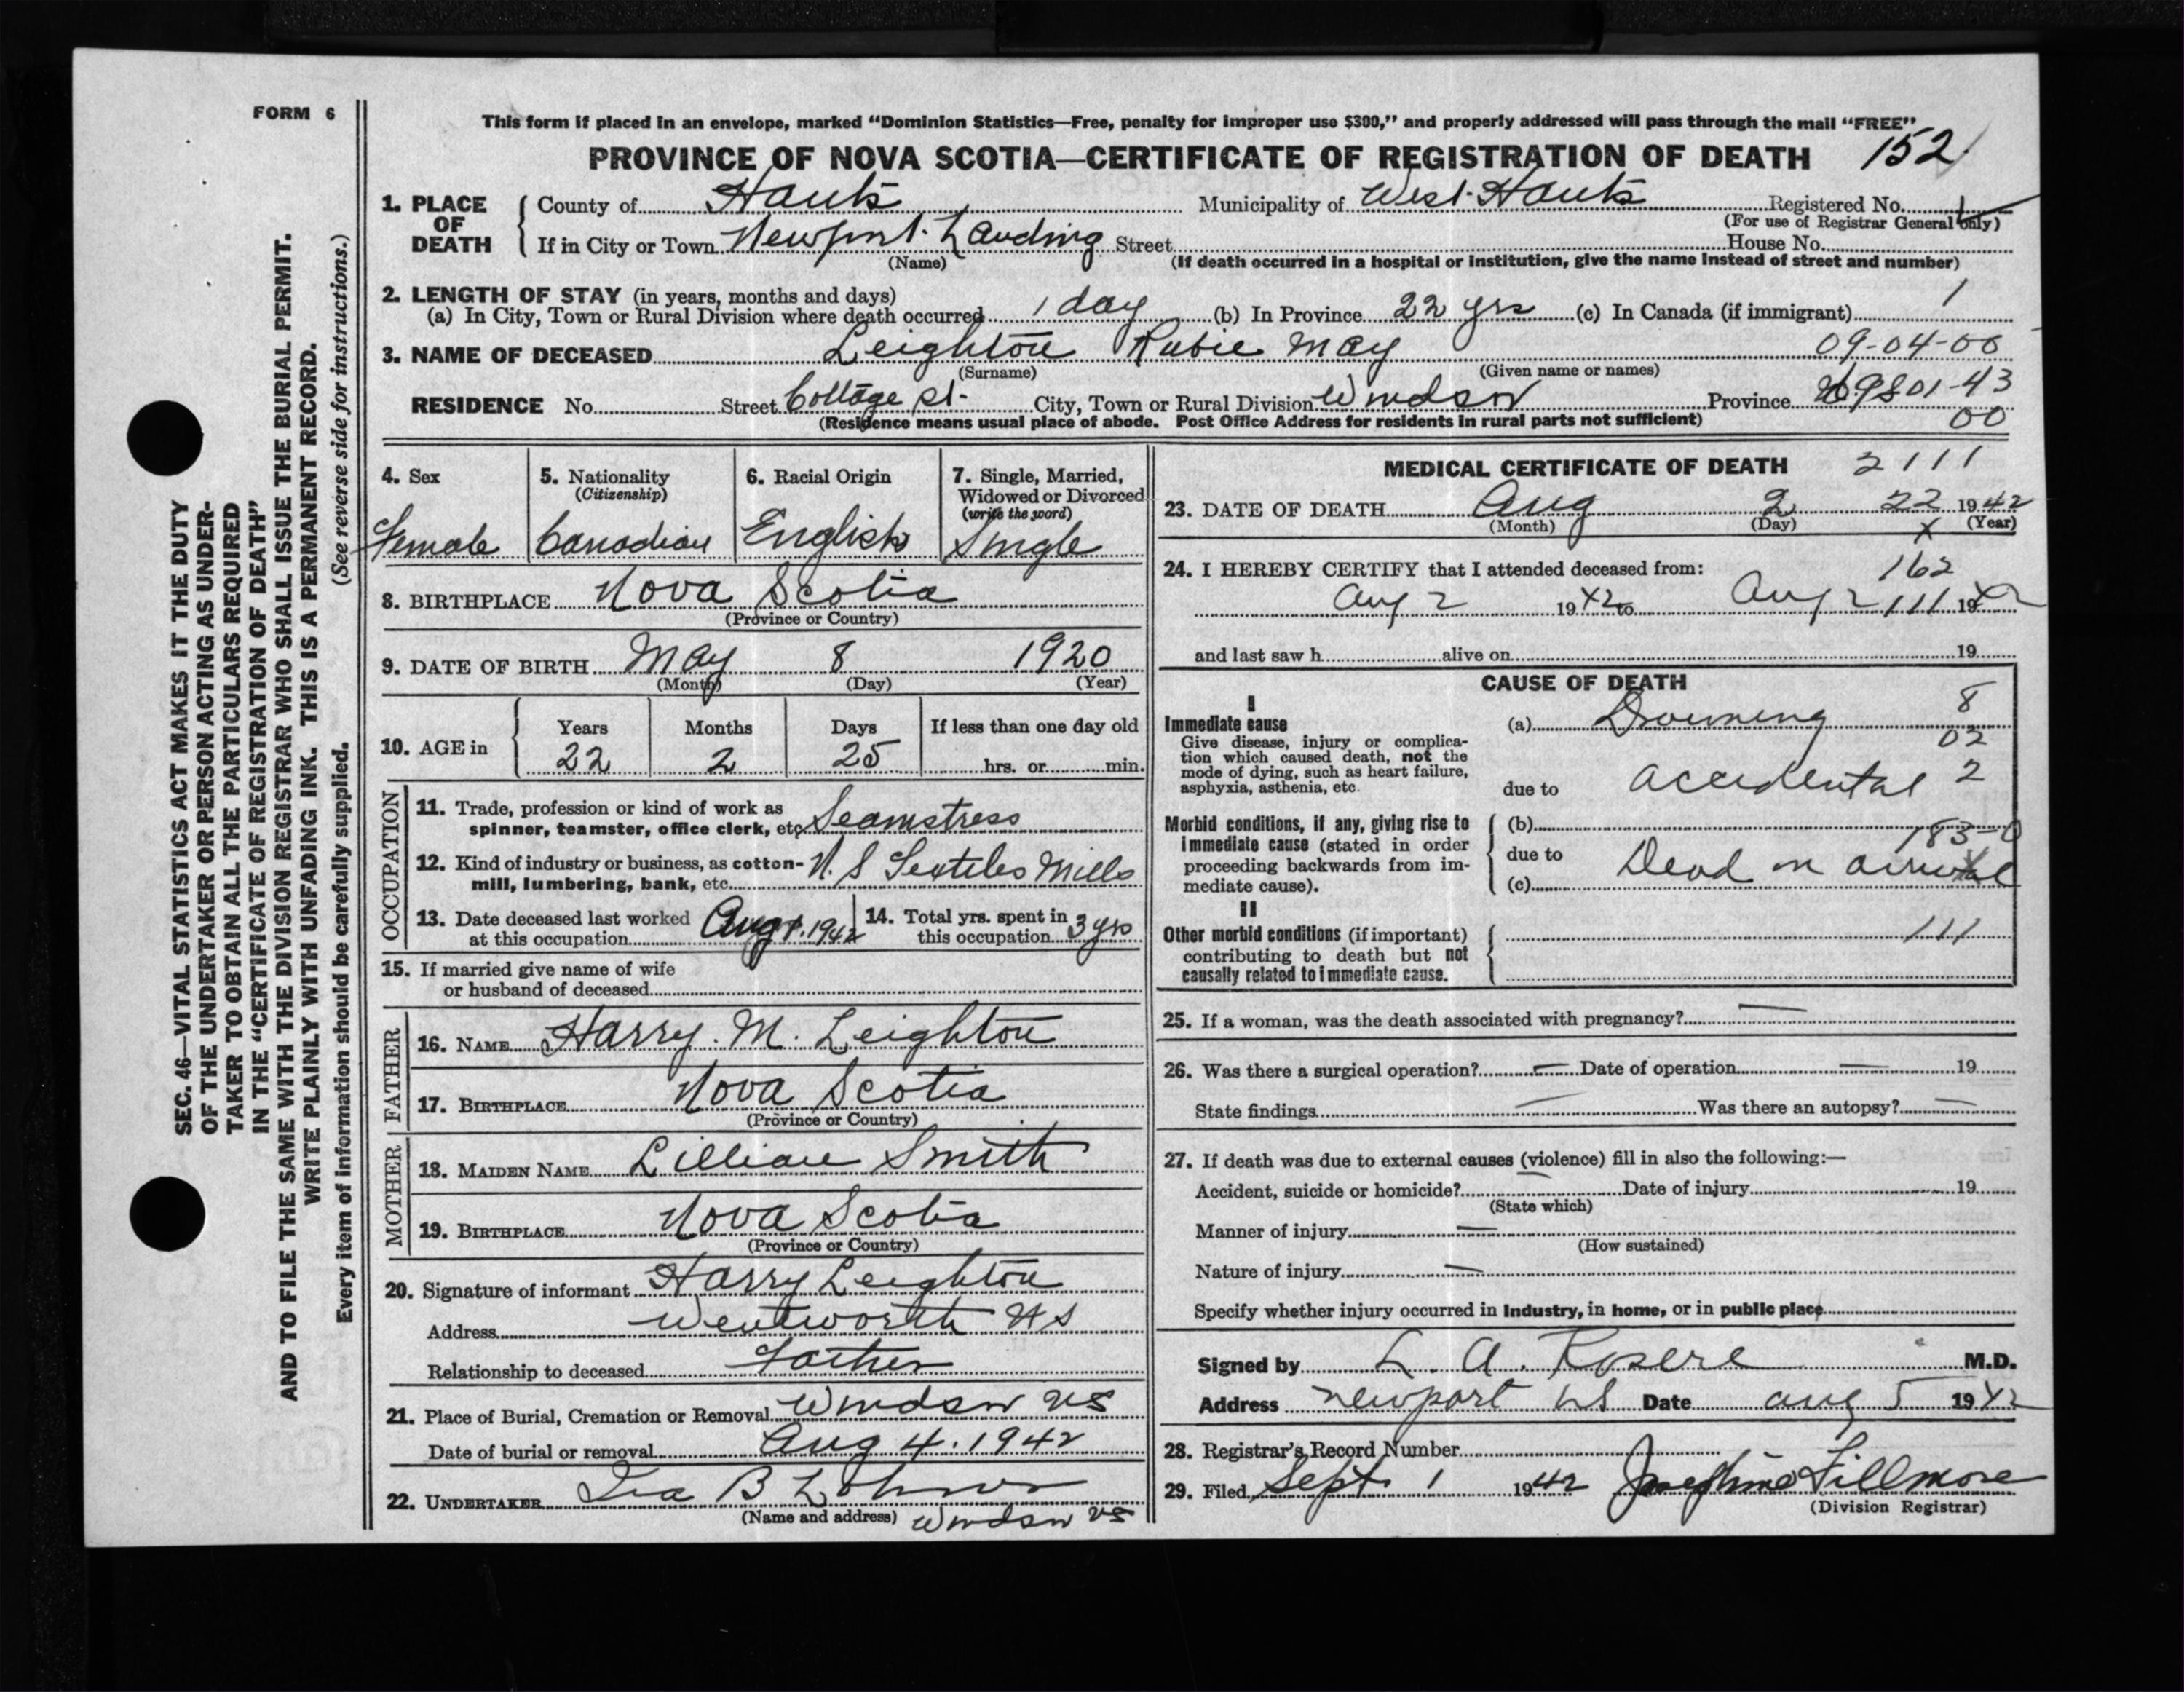 FORM 6
This form if placed in an envelope, marked “Dominion Statistics—Free, penalty for improper use $300,” and properly addressed will pass through the mail “FREE”
PROVINCE OF NOVA SCOTIA—CERTIFICATE OF REGISTRATION OF DEATH 152
1. PLACE OF DEATH
County of Hants Municipality of West Hants Registered No.
(For use of Registrar General only)
If in City or Town Newport Landing Street House No.
(Name) (If death occurred in a hospital or institution, give the name instead of street and number)
2. LENGTH OF STAY (in years, months and days)
(a) In City, Town or Rural Division where death occurred 1 day (b) In Province 22 yrs (c) In Canada (if immigrant) 1
3. NAME OF DECEASED Leighton Rubie May 09-04-00
(Surname) (Given name or names)
RESIDENCE No. Street College St. City, Town or Rural Division Windsor Province 9801-43
(Residence means usual place of abode. Post Office Address for residents in rural parts not sufficient) 00
4. Sex
Female
5. Nationality
(Citizenship)
Canadian
6. Racial Origin
English
7. Single, Married,
Widowed or Divorced
(write the word)
Single
8. BIRTHPLACE Nova Scotia
(Province or Country)
9. DATE OF BIRTH May 8 1920
(Month) (Day) (Year)
10. AGE in
Years Months Days If less than one day old
22 2 25 hrs. or min.
OCCUPATION
11. Trade, profession or kind of work as
spinner, teamster, office clerk, etc Seamstress
12. Kind of industry or business, as cotton-
mill, lumbering, bank, etc. N.S Textiles Mills
13. Date deceased last worked
at this occupation Aug 1. 1942
14. Total yrs. spent in
this occupation 3 yrs
15. If married give name of wife
or husband of deceased
FATHER
16. NAME Harry. M. Leighton
17. BIRTHPLACE Nova Scotia
(Province or Country)
MOTHER
18. MAIDEN NAME Lillian Smith
19. BIRTHPLACE Nova Scotia
(Province or Country)
20. Signature of informant Harry Leighton
Address Wentworth NS
Relationship to deceased Father
21. Place of Burial, Cremation or Removal Windsor NS
Date of burial or removal Aug 4. 1942
22. UNDERTAKER Ira B
(Name and address) Windsor NS
MEDICAL CERTIFICATE OF DEATH 2111
23. DATE OF DEATH Aug 2 22 1942
(Month) (Day) x (Year)
24. I HEREBY CERTIFY that I attended deceased from: 162
Aug 2 1942 to Aug 2 111 1942
and last saw h alive on 19
CAUSE OF DEATH
I
Immediate cause (a) Drowning 8
Give disease, injury or complica-
tion which caused death, not the
mode of dying, such as heart failure,
asphyxia, asthenia, etc.
02
due to accidental 2
Morbid conditions, if any, giving rise to
immediate cause (stated in order
proceeding backwards from im-
mediate cause).
(b) 183-0
due to Dead on arrival
(c)
II
Other morbid conditions (if important)
contributing to death but not
causally related to immediate cause.
111
25. If a woman, was the death associated with pregnancy? —
26. Was there a surgical operation? — Date of operation — 19
State findings — Was there an autopsy? —
27. If death was due to external causes (violence) fill in also the following:—
Accident, suicide or homicide? — Date of injury 19
(State which)
Manner of injury —
(How sustained)
Nature of injury —
Specify whether injury occurred in Industry, in home, or in public place
Signed by L. A. M.D.
Address Newport NS Date Aug 5 1942
28. Registrar's Record Number
29. Filed Sept. 1 1942 Josephine Fillmore
(Division Registrar)
SEC. 46—VITAL STATISTICS ACT MAKES IT THE DUTY
OF THE UNDERTAKER OR PERSON ACTING AS UNDER-
TAKER TO OBTAIN ALL THE PARTICULARS REQUIRED
IN THE “CERTIFICATE OF REGISTRATION OF DEATH”
AND TO FILE THE SAME WITH THE DIVISION REGISTRAR WHO SHALL ISSUE THE BURIAL PERMIT.
WRITE PLAINLY WITH UNFADING INK. THIS IS A PERMANENT RECORD.
Every item of information should be carefully supplied. (See reverse side for instructions.)